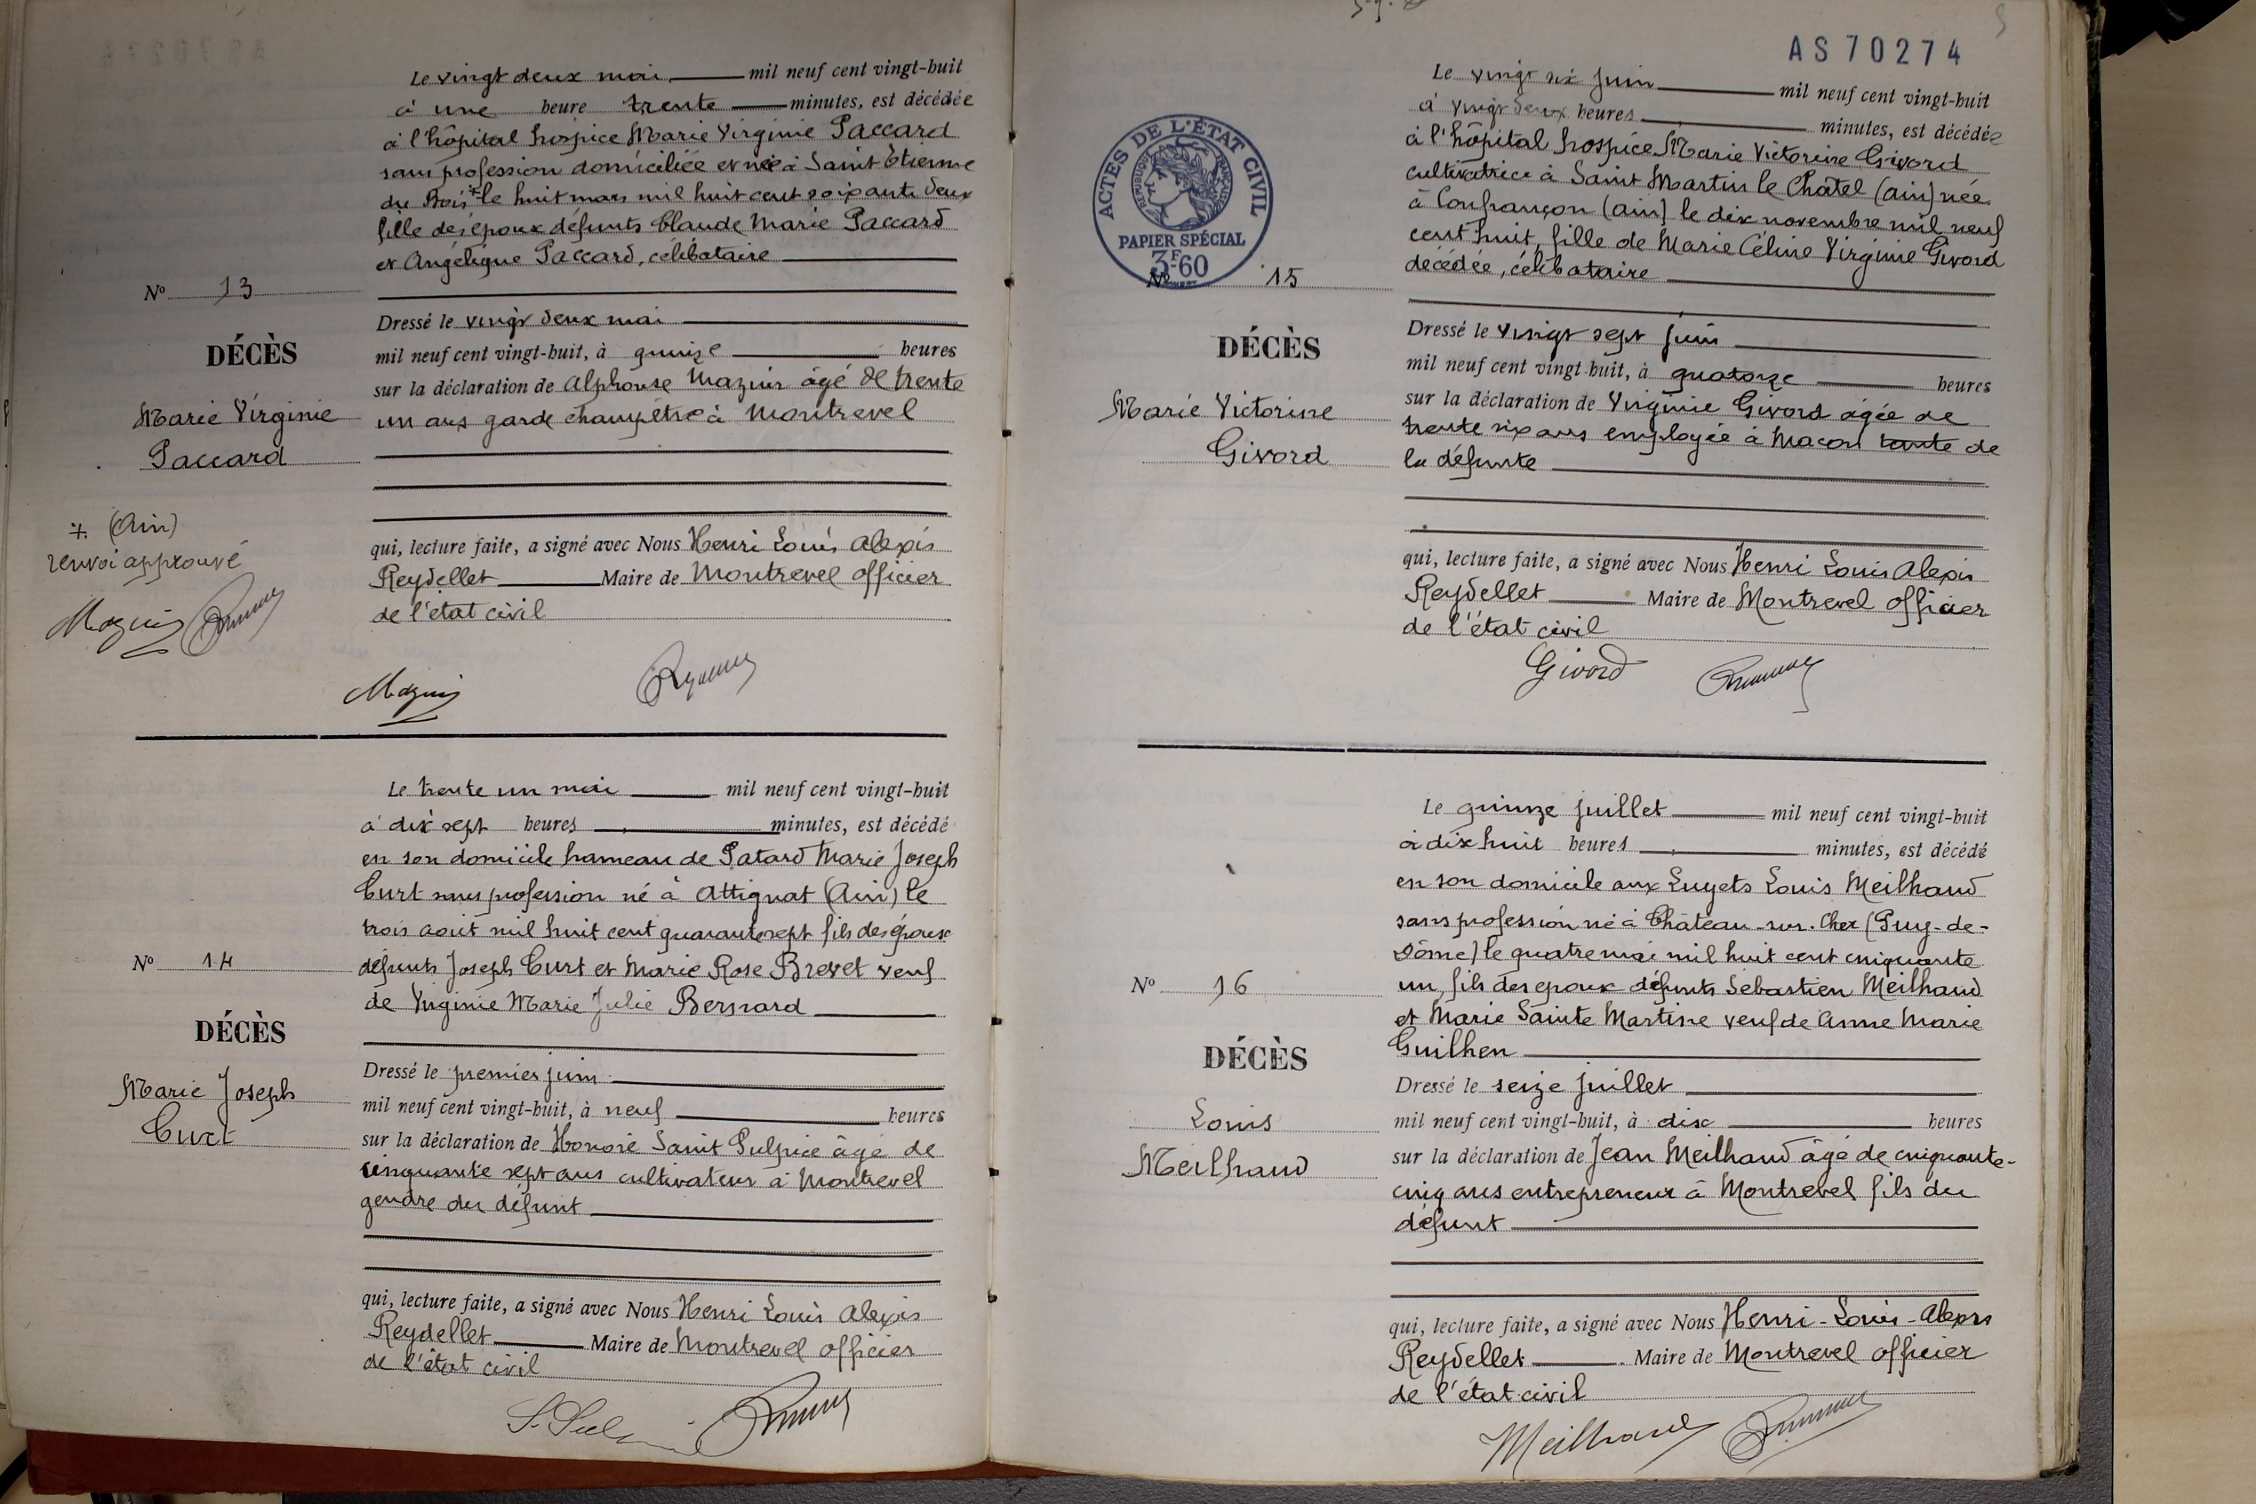 Le vingt deux mai mil neuf cent vingt-huit
à une heure trente minutes, est décédée
à l'hôpital hospice Marie Virginie Paccard
sans profession domiciliée et née à Saint Etienne
du Bois * le huit mars mil huit cent soixante deux
fille des époux défunts Claude Marie Paccard
et Angélique Paccard, célibataire
No 13
DÉCÈS
Marie Virginie
Paccard
* (Ain)
renvoi approuvé
Mazuir
Dressé le vingt deux mai
mil neuf cent vingt-huit, à quinze heures
sur la déclaration de Alphonse Mazuir âgé de trente
un ans garde champêtre à Montrevel
qui, lecture faite, a signé avec Nous Henri Louis Alexis
Reydellet Maire de Montrevel officier
de l'état civil
Mazuir
Le trente un mai mil neuf cent vingt-huit
à dix sept heures minutes, est décédé
en son domicile hameau de Patard Marie Joseph
Curt sans profession né à Attignat (Ain) le
trois août mil huit cent quarante sept fils des époux
défunts Joseph Curt et Marie Rose Brevet veuf
de Virginie Marie Julie Bernard
No 14
DÉCÈS
Marie Joseph
Curt
Dressé le premier juin
mil neuf cent vingt-huit, à neuf heures
sur la déclaration de Honoré Saint Sulpice âgé de
cinquante sept ans cultivateur à Montrevel
gendre du défunt
qui, lecture faite, a signé avec Nous Henri Louis Alexis
Reydellet Maire de Montrevel officier
de l'état civil
AS 70274
ACTES DE L'ÉTAT CIVIL
RÉPUBLIQUE FRANÇAISE
PAPIER SPÉCIAL
3F60
Le vingt six juin mil neuf cent vingt-huit
à vingt deux heures minutes, est décédée
à l'hôpital hospice Marie Victorine Givord
cultivatrice à Saint Martin le Châtel (Ain) née
à Confrançon (Ain) le dix novembre mil neuf
cent huit, fille de Marie Céline Virginie Givord
décédée, célibataire
No 15
DÉCÈS
Marie Victorine
Givord
Dressé le vingt sept juin
mil neuf cent vingt-huit, à quatorze heures
sur la déclaration de Virginie Givord âgée de
trente six ans employée à Macon tante de
la défunte
qui, lecture faite, a signé avec Nous Henri Louis Alexis
Reydellet Maire de Montrevel officier
de l'état civil
Givord
Le quinze juillet mil neuf cent vingt-huit
à dix huit heures minutes, est décédé
en son domicile aux Luyets Louis Meilhaud
sans profession né à Château-sur-Cher (Puy-de-
Dôme) le quatre mai mil huit cent cinquante
un, fils des époux défunts Sébastien Meilhaud
et Marie Sainte Martine veuf de Anne Marie
Guilhen
No 16
DÉCÈS
Louis
Meilhaud
Dressé le seize juillet
mil neuf cent vingt-huit, à dix heures
sur la déclaration de Jean Meilhaud âgé de cinquante-
cinq ans entrepreneur à Montrevel fils du
défunt
qui, lecture faite, a signé avec Nous Henri-Louis-Alexis
Reydellet Maire de Montrevel officier
de l'état civil
Meilhaud